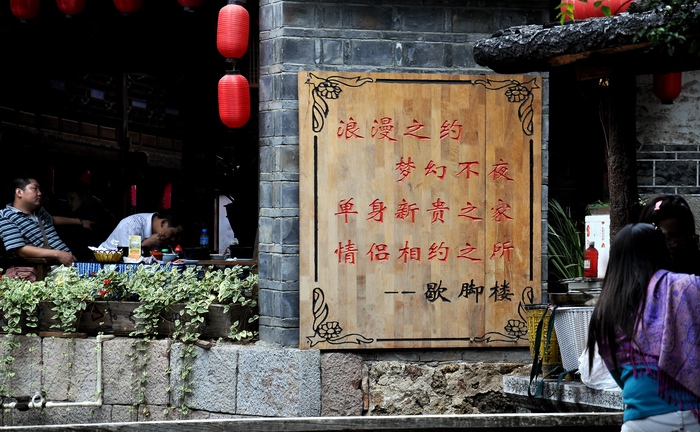 浪漫之约
梦幻不夜
单身新贵之家
情侣相约之所
——歇脚楼